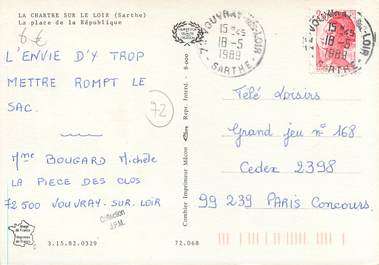 LA CHARTRE SUR LE LOIR (Sarthe)
La place de la République
6 €
L'ENVIE D'Y TROP
METTRE ROMPT LE
SAC.
72
Mme BOUGARD Michèle
LA PIECE DES CLOS
72500 VOUVRAY. SUR. LOIR
Collection
J.P.M.
3.15.82.0329
72.068
Combier Imprimeur Mâcon
Repr. Interd. - 9-000
72 VOUVRAY SUR-LOIR
15 H45
18-5
1989
SARTHE
72 VOUVRAY SUR-LOIR
15 H45
18-5
1989
SARTHE
Télé Loisirs
Grand jeu n° 168
Cedex 2398
99 239 PARIS Concours.